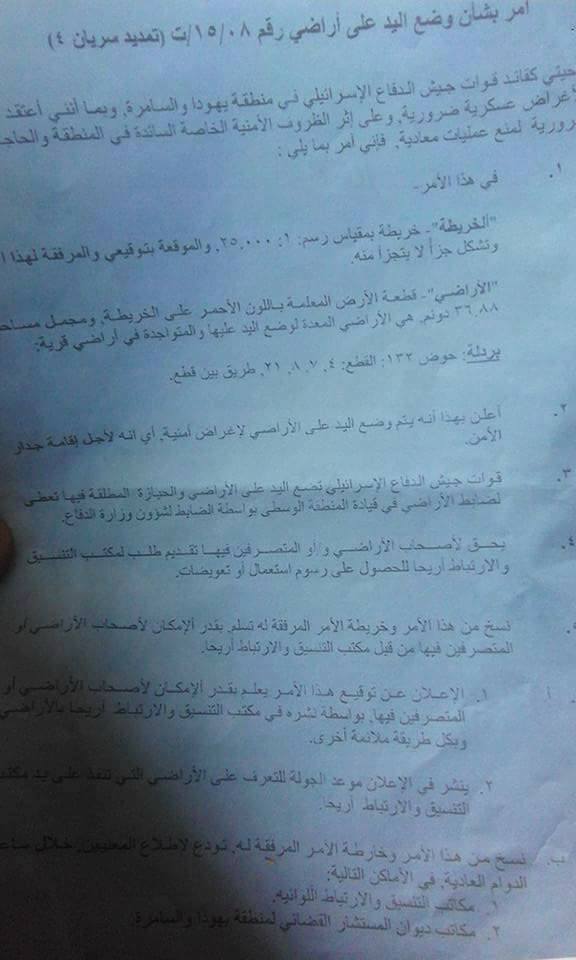 أمر بشأن وضع اليد على أراضي رقم ١٥/٠٨/ت (تمديد سريان ٤)
كقائد قوات جيش الدفاع الإسرائيلي في منطقة يهودا والسامرة, وبما أنني أعتقد
عسكرية ضرورية, وعلى إثر الظروف الأمنية الخاصة السائدة في المنطقة
لمنع عمليات معادية, فإني أمر بما يلي:
١. في هذا الأمر-
"الخريطة"- خريطة بمقياس رسم: ١: ٢٥,٠٠٠, والموقعة بتوقيعي والمرفقة لهذا
وتشكل جزأ لا يتجزأ منه.
"الأراضي"- قطعة الأرض المعلمة باللون الأحمر على الخريطة, ومجمل
٣٦,٨٨ دونم, هي الأراضي المعدة لوضع اليد عليها والمتواجدة في أراضي قرية:
بردلة: حوض ١٣٢: القطع: ٤, ٧, ٨, ٢١, طريق بين قطع.
٢. أعلن بهذا أنه يتم وضع اليد على الأراضي لإغراض أمنية, أي انه لأجل إقامة جدار
الأمن.
٣. قوات جيش الدفاع الإسرائيلي تضع اليد على الأراضي والحيازة المطلقة فيها تعطى
لضابط الأراضي في قيادة المنطقة الوسطى بواسطة الضابط لشؤون وزارة الدفاع.
٤. يحق لأصحاب الأراضي و/أو المتصرفين فيها تقديم طلب لمكتب التنسيق
والارتباط أريحا للحصول على رسوم استعمال أو تعويضات.
نسخ من هذا الأمر وخريطة الأمر المرفقة له تسلم, بقدر الإمكان لأصحاب الأراضي و/أو
المتصرفين فيها من قبل مكتب التنسيق والارتباط أريحا.
أ. ١. الإعلان عن توقيع هذا الأمر يعلم بقدر الإمكان لأصحاب الأراضي و/أو
المتصرفين فيها, بواسطة نشره في مكتب التنسيق والارتباط أريحا
وبكل طريقة ملائمة أخرى.
٢. ينشر في الإعلان موعد الجولة للتعرف على الأراضي التي تنفذ على يد
التنسيق والارتباط أريحا.
ب. نسخ من هذا الأمر وخارطة الأمر المرفقة له, تودع لاطلاع المعنيين, خلال
الدوام العادية, في الأماكن التالية:
١. مكاتب التنسيق والارتباط اللوائيه.
٢. مكاتب ديوان المستشار القضائي لمنطقة يهودا والسامرة.